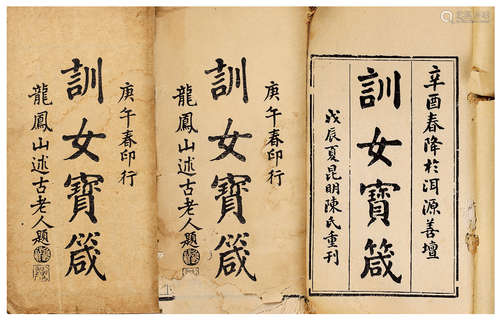 庚午春印行
訓女寶箴
龍鳳山述古老人題
庚午春印行
訓女寶箴
龍鳳山述古老人題
辛酉春降於洱源善壇
訓女寶箴
戊辰夏昆明陳氏重刊